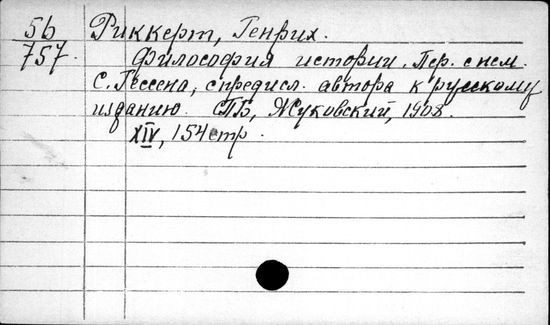 5б Риккерт, Генрих.
757. Философия истории. Пер. с нем.
С. Гессена, с предисл. автора к русскому
изданию. СПБ, Жуковский, 1908.
XIV, 154 стр.